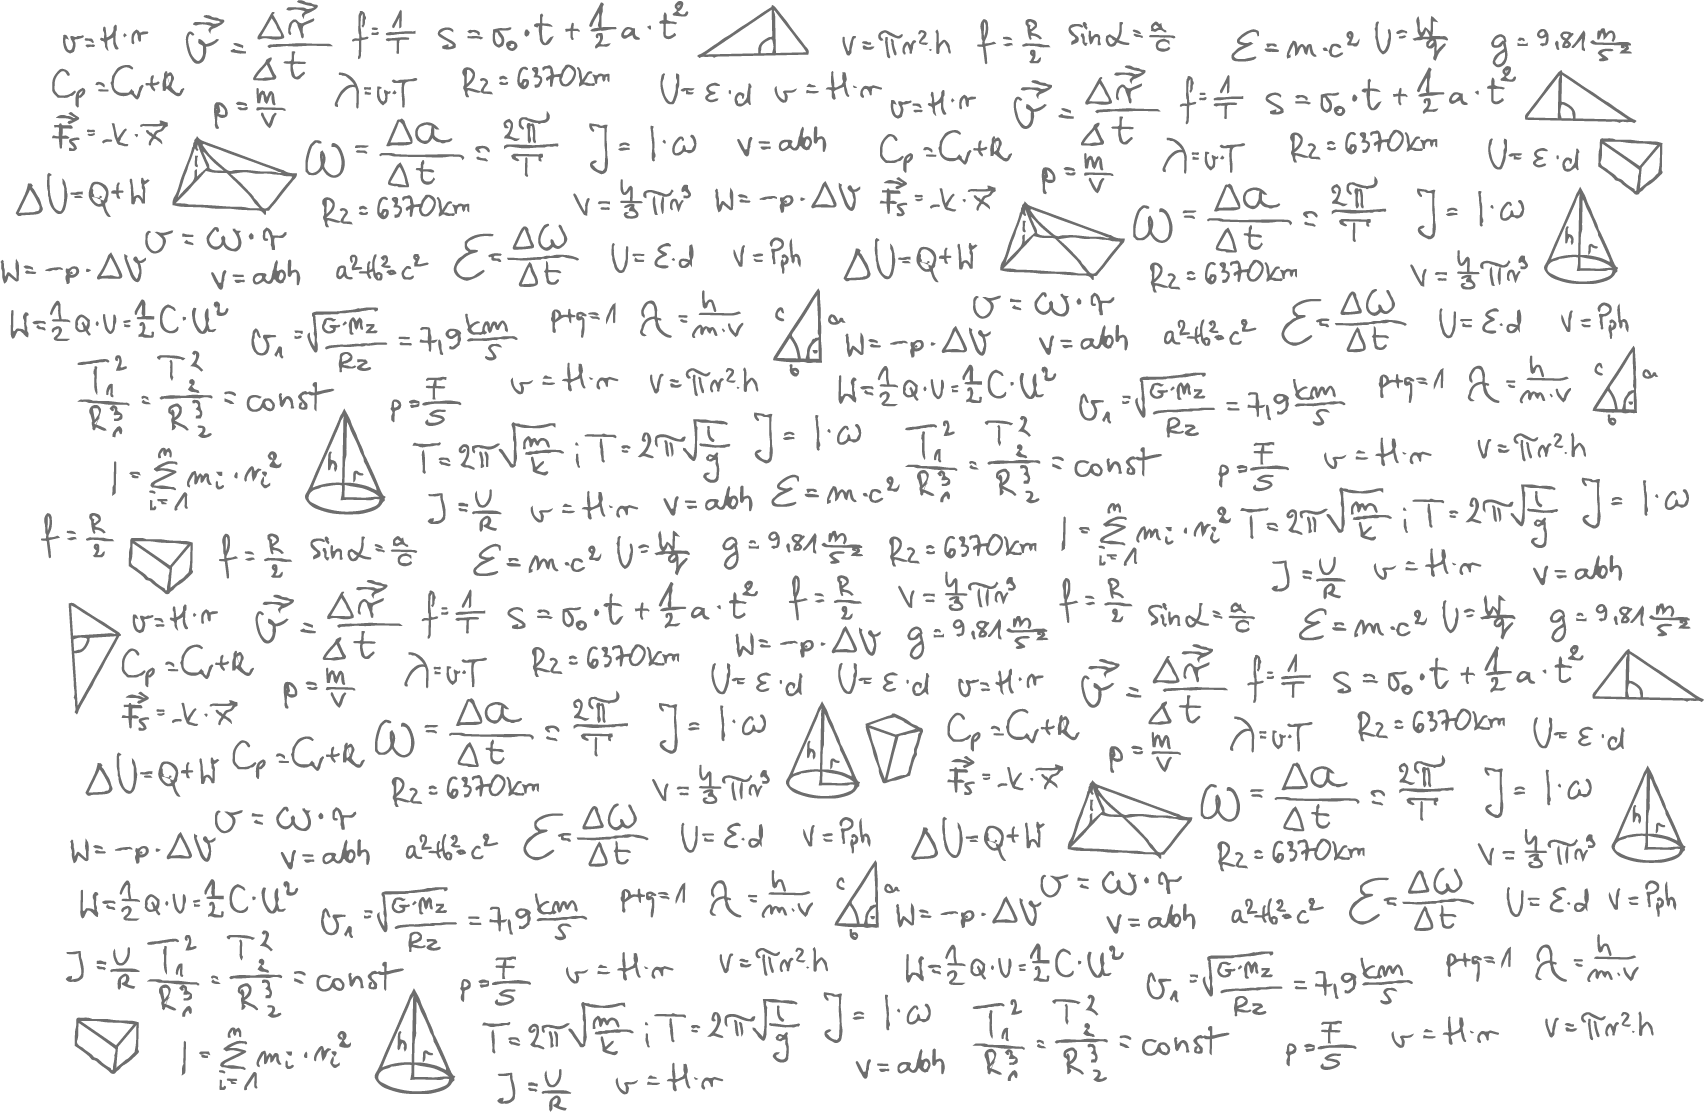 v=H·r v⃗ = Δr⃗/Δt f=1/T s=v₀·t+1/2 a·t² V=πr²·h f=R/2 sinα=a/c E=m·c² U=W/q g=9,81 m/s²
Cp=Cv+R p=m/V λ=v·T Rz=6370km U=E·d v=H·r v=H·r v⃗ = Δr⃗/Δt f=1/T s=v₀·t+1/2 a·t²
F⃗s=-k·x⃗ ω = Δa/Δt = 2π/T J=I·ω V=abh Cp=Cv+R p=m/V λ=v·T Rz=6370km U=E·d
ΔU=Q+W Rz=6370km V=4/3 πr³ W=-p·ΔV F⃗s=-k·x⃗ ω = Δa/Δt = 2π/T J=I·ω h r
W=-p·ΔV v=ω·r V=abh a²+b²=c² Ɛ=Δω/Δt U=E·d V=Pph ΔU=Q+W Rz=6370km V=4/3 πr³
W=1/2 Q·U=1/2 C·U² v₁=√(G·Mz/Rz)=7,9 km/s p+q=1 λ=h/m·v c a b W=-p·ΔV v=ω·r V=abh a²+b²=c² Ɛ=Δω/Δt U=E·d V=Pph
T₁²/R₁³ = T₂²/R₂³ = const p=F/S v=H·r V=πr²·h W=1/2 Q·U=1/2 C·U² v₁=√(G·Mz/Rz)=7,9 km/s p+q=1 λ=h/m·v c a b
I=Σ i=1 n mi·ri² h r T=2π√(m/k) ; T=2π√(l/g) J=I·ω T₁²/R₁³ = T₂²/R₂³ = const p=F/S v=H·r V=πr²·h
J=U/R v=H·r V=abh E=m·c² I=Σ i=1 n mi·ri² T=2π√(m/k) ; T=2π√(l/g) J=I·ω
f=R/2 f=R/2 sinα=a/c E=m·c² U=W/q g=9,81 m/s² Rz=6370km J=U/R v=H·r V=abh
v=H·r v⃗ = Δr⃗/Δt f=1/T s=v₀·t+1/2 a·t² f=R/2 V=4/3 πr³ f=R/2 sinα=a/c E=m·c² U=W/q g=9,81 m/s²
Cp=Cv+R p=m/V λ=v·T Rz=6370km W=-p·ΔV g=9,81 m/s²
F⃗s=-k·x⃗ U=E·d U=E·d v=H·r v⃗ = Δr⃗/Δt f=1/T s=v₀·t+1/2 a·t²
ΔU=Q+W Cp=Cv+R ω = Δa/Δt = 2π/T J=I·ω h r Cp=Cv+R p=m/V λ=v·T Rz=6370km U=E·d
Rz=6370km V=4/3 πr³ F⃗s=-k·x⃗ ω = Δa/Δt = 2π/T J=I·ω h r
W=-p·ΔV v=ω·r V=abh a²+b²=c² Ɛ=Δω/Δt U=E·d V=Pph ΔU=Q+W Rz=6370km V=4/3 πr³
W=1/2 Q·U=1/2 C·U² v₁=√(G·Mz/Rz)=7,9 km/s p+q=1 λ=h/m·v c a b W=-p·ΔV v=ω·r V=abh a²+b²=c² Ɛ=Δω/Δt U=E·d V=Pph
J=U/R T₁²/R₁³ = T₂²/R₂³ = const p=F/S v=H·r V=πr²·h W=1/2 Q·U=1/2 C·U² v₁=√(G·Mz/Rz)=7,9 km/s p+q=1 λ=h/m·v
I=Σ i=1 n mi·ri² h r T=2π√(m/k) ; T=2π√(l/g) J=I·ω T₁²/R₁³ = T₂²/R₂³ = const p=F/S v=H·r V=πr²·h
J=U/R v=H·r V=abh